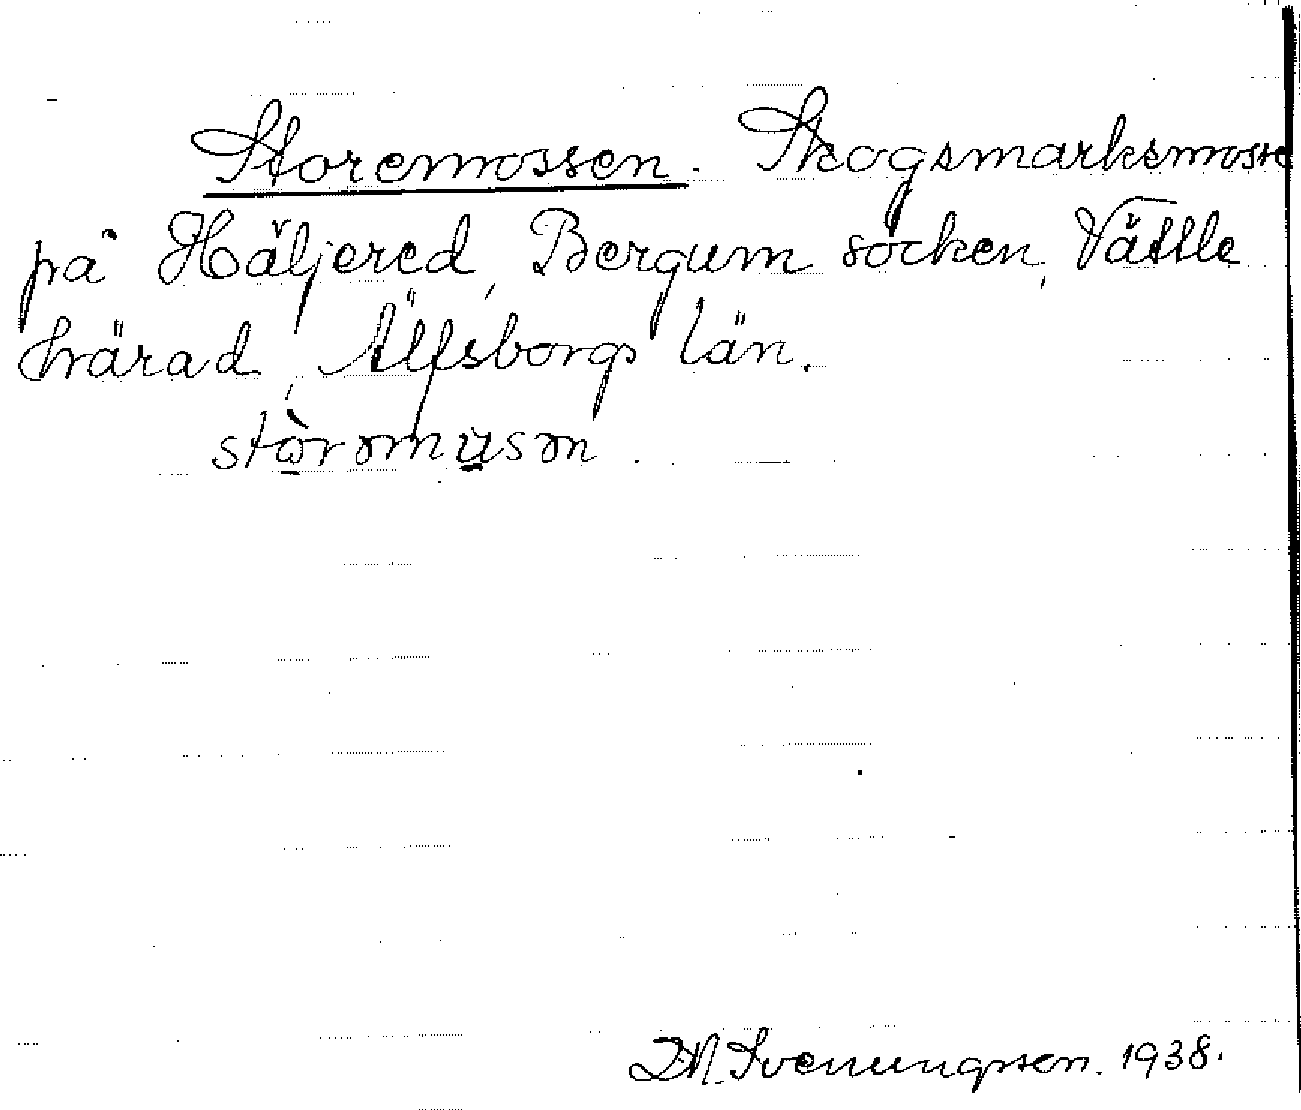 Storemossen. Skogsmarksmosse
på Häljered, Bergum socken, Vättle
härad, Älfsborgs län.
stòrəmusən.
Svenungsson. 1938.